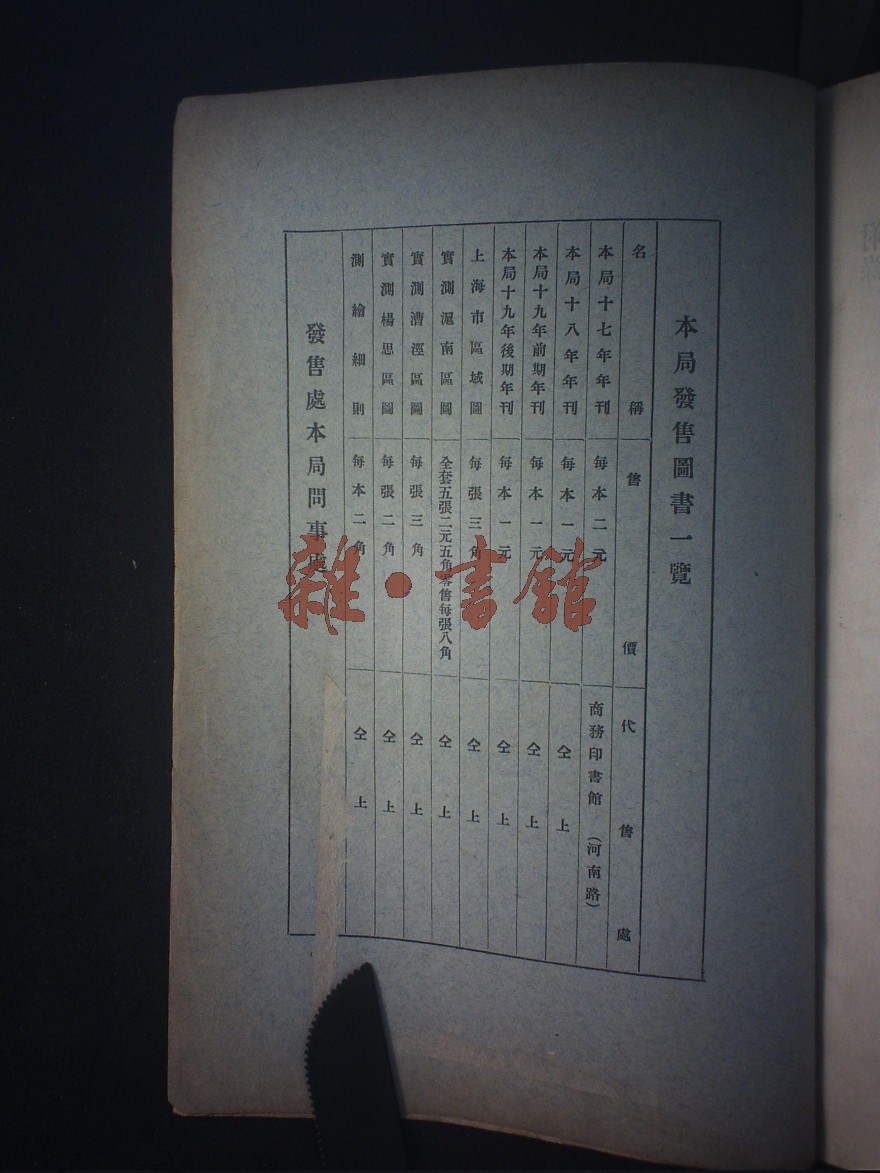 本局發售圖書一覽
名稱 售價 代售處
本局十七年年刊 每本二元 商務印書館（河南路）
本局十八年年刊 每本一元 仝上
本局十九年前期年刊 每本一元 仝上
本局十九年後期年刊 每本一元 仝上
上海市區域圖 每張三角 仝上
實測滬南區圖 全套五張二元五角零售每張八角 仝上
實測漕涇區圖 每張三角 仝上
實測楊思區圖 每張二角 仝上
測繪細則 每本二角 仝上
發售處本局問事處
雜·書館